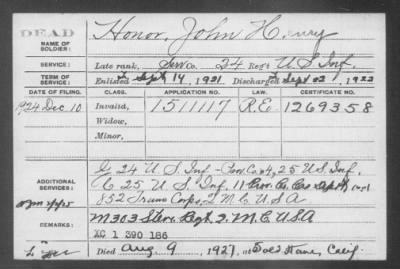 DEAD
NAME OF SOLDIER:
Honor, John Henry
SERVICE:
Late rank, Serv Co. 24 Reg't U.S. Inf.
TERM OF SERVICE:
Enlisted Sept 14, 1921 Discharged Sept 1922
DATE OF FILING. CLASS. APPLICATION NO. LAW. CERTIFICATE NO.
1924 Dec 10 Invalid, 1511117 R.E. 1269358
Widow,
Minor,
ADDITIONAL SERVICES:
G 24 U.S. Inf - Prov. Co. 4, 25 U.S. Inf.
25 U.S. Inf. 11
852 Trans Corps, Q.M.C. USA
REMARKS:
M 303 Stev. Regt Q.M.C. USA
XC 1 390 186
Died Aug 9, 1927, at Calif